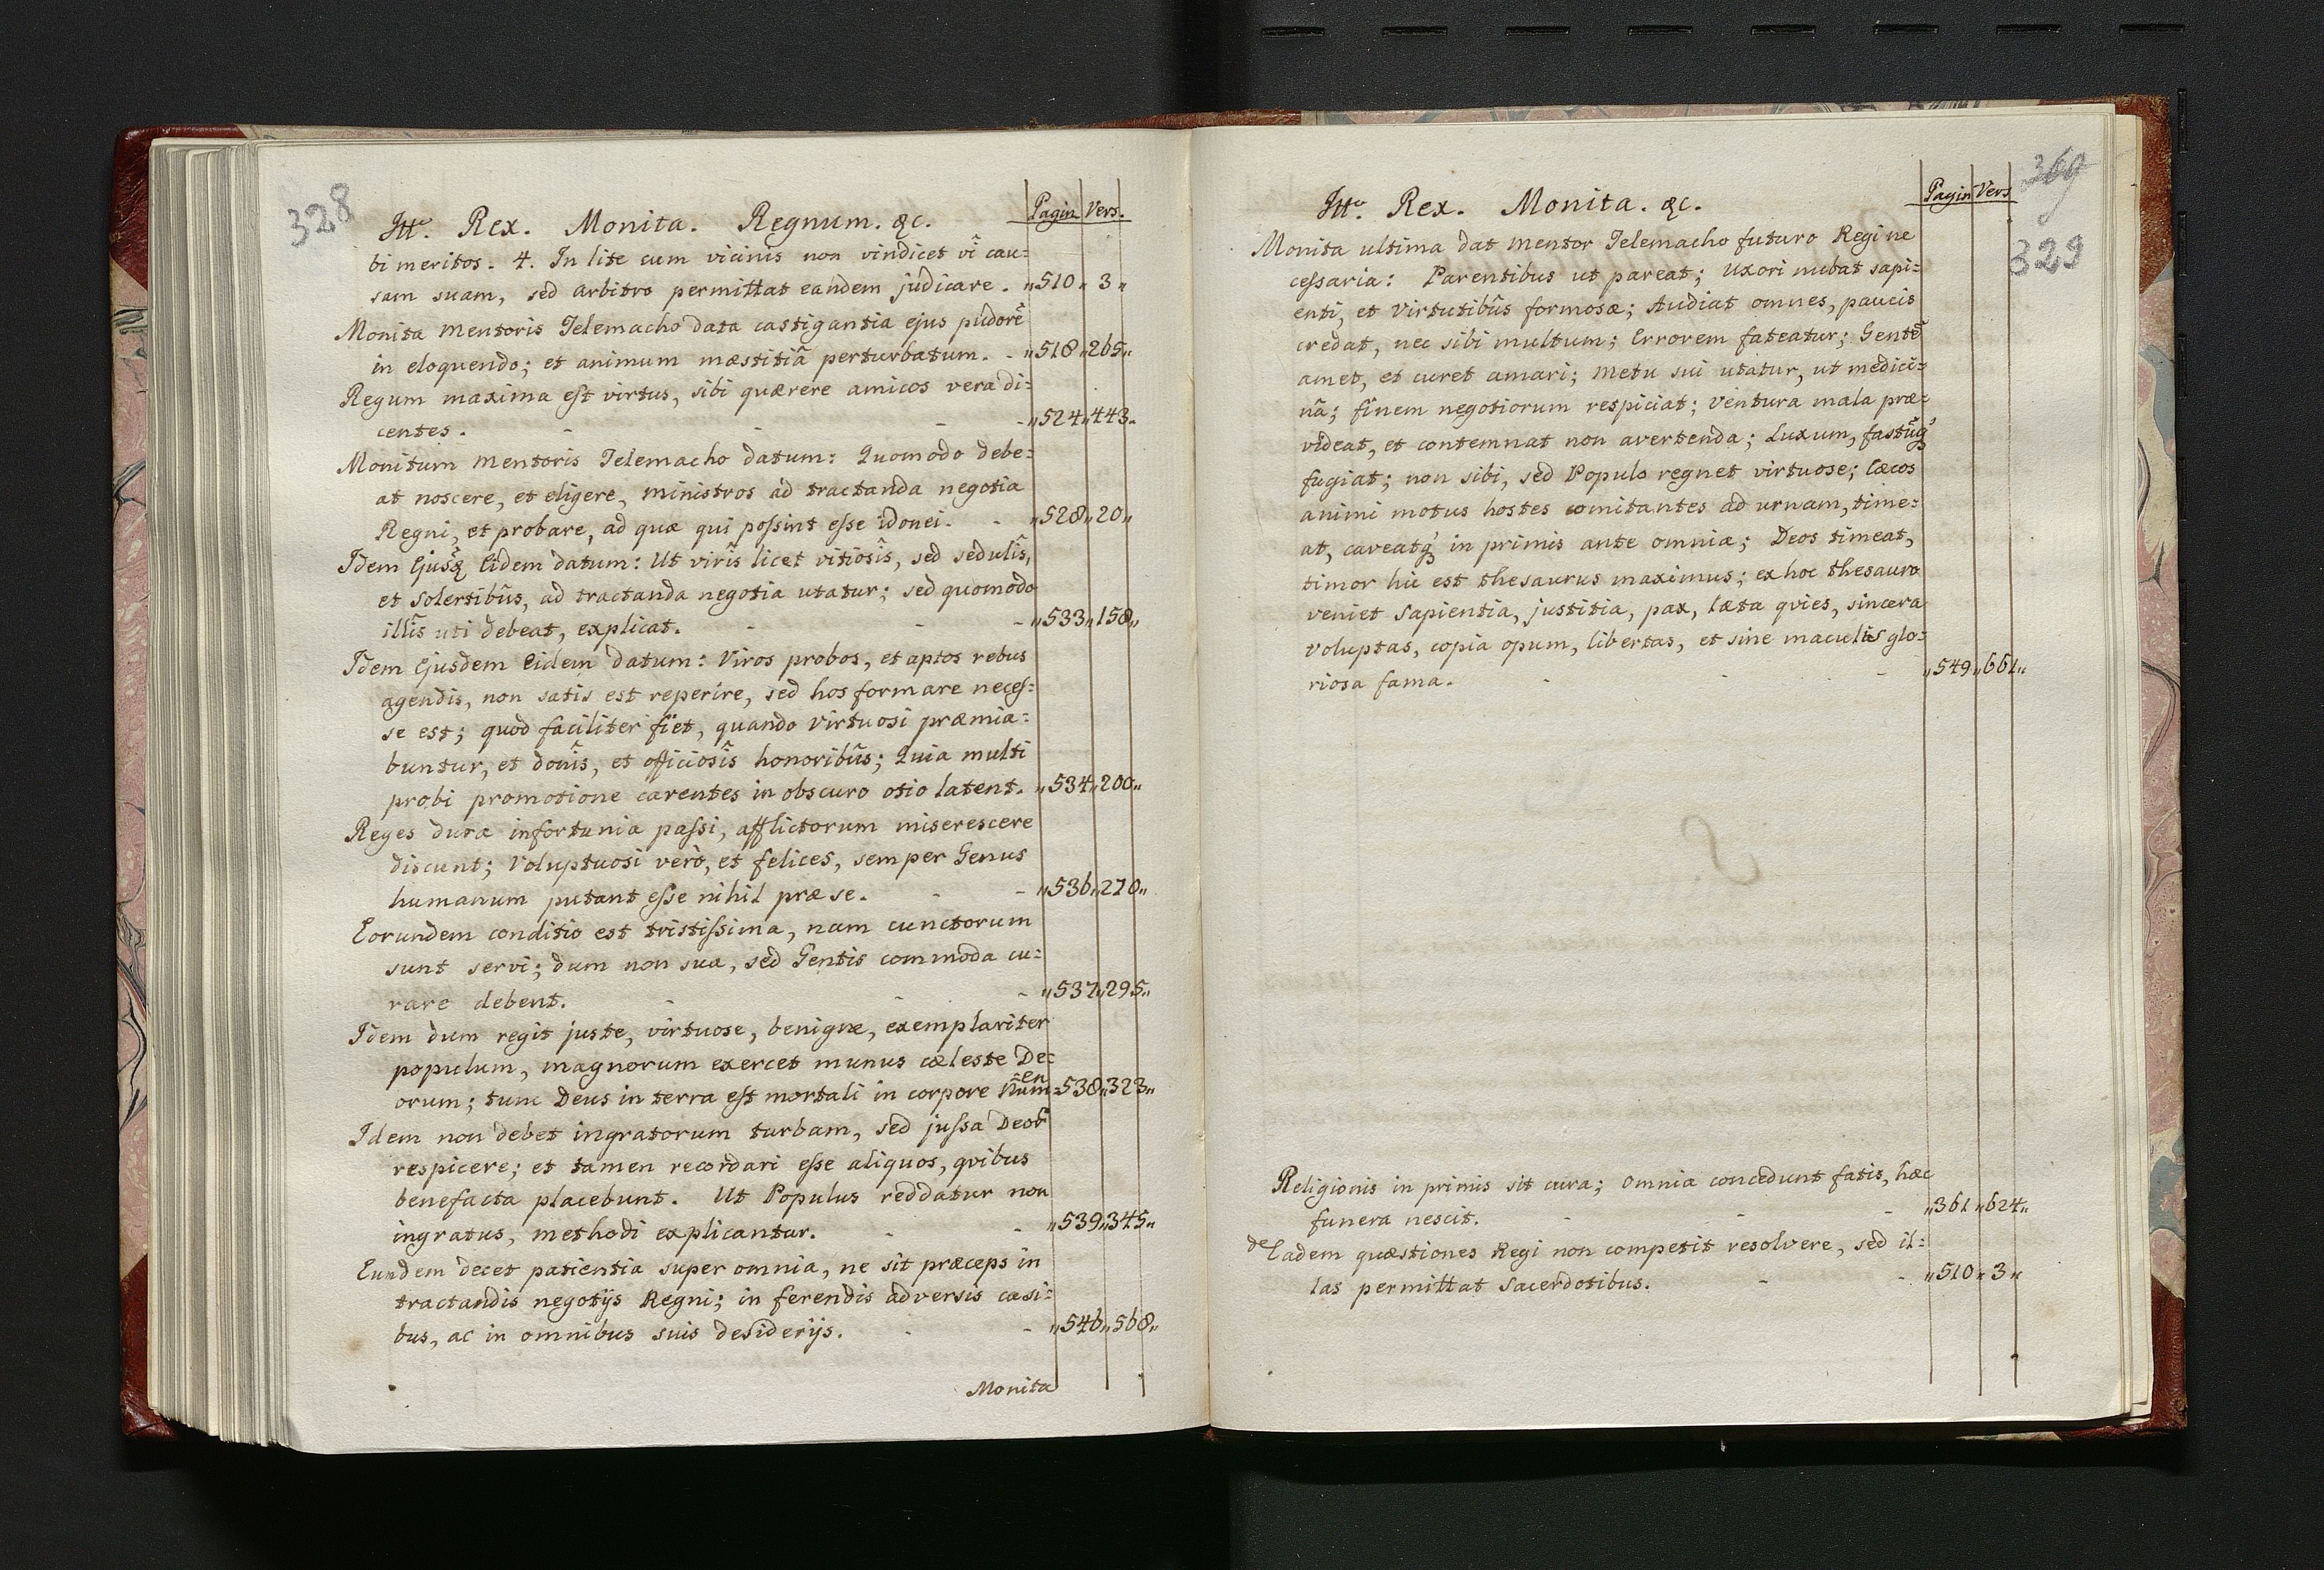 328
Itt. Rex. Monita. Regnum. &c. Pagin. Vers.
bi meritos. 4. In lite cum vicinis non vindicet vî cau=
sam suam, sed arbitro permittat eandem judicare. „510„ 3„
Monita Mentoris Telemacho data castigantia ejus pudorē
in eloquendo; et animum mæstitiâ perturbatum. - „518„265„
Regum maxima est virtus, sibi quærere amicos vera di=
centes. - - - - „524„443„
Monitum Mentoris Telemacho datum: Quomodo debe=
at noscere, et eligere, ministros ad tractanda negotia
Regni, et probare, ad quæ qui possint esse idonei. - „528„20„
Idem Ejusdē Eidem datum: Ut virîs licet vitiosîs, sed sedulîs,
et solertibûs, ad tractanda negotia utatur; sed quomodo
illîs uti debeat, explicat. - - - „533„158„
Idem Ejusdem Eidem datum: Viros probos, et aptos rebus
agendis, non satis est reperire, sed hos formare neces=
se est; quod faciliter fiet, quando virtuosi præmia=
buntur, et donîs, et officiosîs honoribûs; Quia multi
probi promotione carentes in obscuro otio latent. „534„200„
Reges dura infortunia passi, afflictorum miserescere
discunt; Voluptuosi verò, et felices, semper Genus
humanum putant esse nihil præ se. - - „536„270„
Eorundem conditio est tristissima, nam cunctorum
sunt servi; dum non sua, sed Gentis commoda cu=
rare debent. - - - „537„295„
Idem dum regit juste, virtuose, benigne, exemplariter
populum, magnorum exercet munus cæleste De=
=en
orum; tunc Deus in terra est mortali in corpore Num= 538„323„
Idem non debet ingratorum turbam, sed jussa Deor̄
respicere; et tamen recordari esse aliquos, qvibus
benefacta placebunt. Ut Populus reddatur non
ingratus, methodi explicantur. - - „539„345„
Eundem decet patientia super omnia, ne sit præceps in
tractandis negotijs Regni; in ferendis adversis casi=
bus, ac in omnibus suis desiderijs. - - „546„568„
Monita
369
329
Itt. Rex. Monita. &c. Pagin Vers
Monita ultima dat Mentor Telemacho futuro Regi ne
cessaria: Parentibus ut pareat; Uxori nubat sapi=
enti, et Virtutibûs formosæ; Audiat omnes, paucis
credat, nec sibi multum; Errorem fateatur; Gentē
amet, et curet amari; Metu sui utatur, ut medici=
nâ; finem negotiorum respiciat; Ventura mala præ=
videat, et contemnat non avertenda; Luxum, fastūq́
fugiat; non sibi, sed Populo regnet virtuose; Cæcos
animi motus hostes comitantes ad urnam, time=
at, caveatq́ in primis ante omnia; Deos timeat,
timor hic est thesaurus maximus; ex hoc thesauro
veniet sapientia, justitia, pax, læta qvies, sincera
voluptas, copia opum, libertas, et sine maculis glo=
riosa fama. - - - „549„661„
Religionis in primis sit cura; omnia concedunt fatis, hæc
funera nescit. - - - „361„624„
de Eadem quæstiones Regi non competit resolvere, sed il=
las permittat Sacerdotibus. - - „510„3„